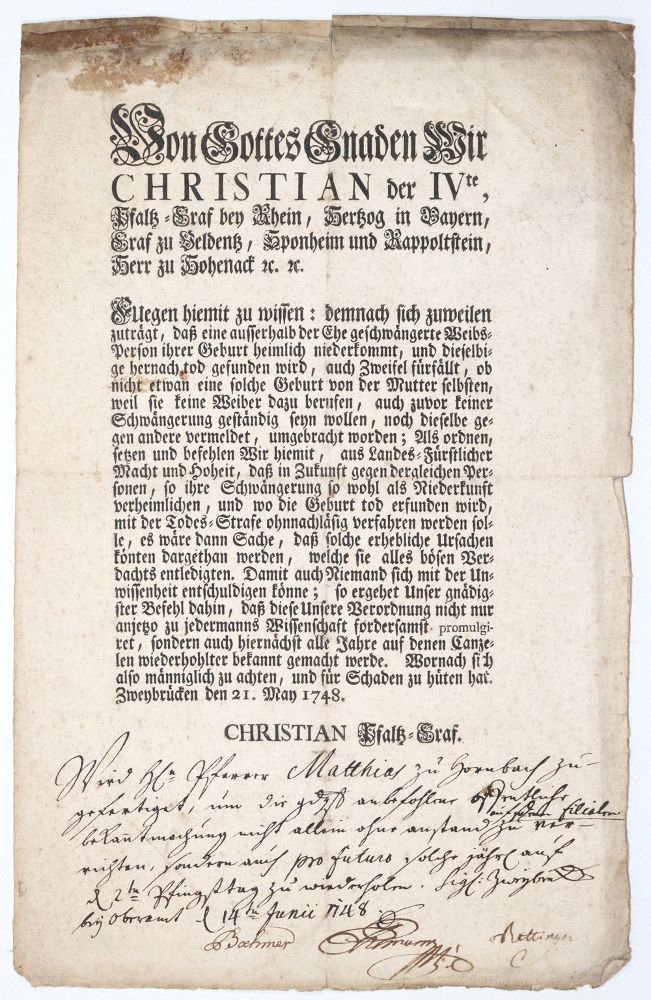 Von Gottes Gnaden Wir
CHRISTIAN der IVte,
Pfaltz-Graf bey Rhein, Hertzog in Bayern,
Graf zu Veldentz, Sponheim und Rappoltstein,
Herr zu Hohenack ꝛc. ꝛc.
Fuegen hiemit zu wissen: demnach sich zuweilen
zuträgt, daß eine ausserhalb der Ehe geschwängerte Weibs-
Person ihrer Geburt heimlich niederkommt, und dieselbi-
ge hernach tod gefunden wird, auch Zweifel fürfällt, ob
nicht etwan eine solche Geburt von der Mutter selbsten,
weil sie keine Weiber dazu berufen, auch zuvor keiner
Schwängerung geständig seyn wollen, noch dieselbe ge-
gen andere vermeldet, umgebracht worden; Als ordnen,
setzen und befehlen Wir hiemit, aus Landes-Fürstlicher
Macht und Hoheit, daß in Zukunft gegen dergleichen Per-
sonen, so ihre Schwängerung so wohl als Niederkunft
verheimlichen, und wo die Geburt tod erfunden wird,
mit der Todes-Strafe ohnnachläsig verfahren werden sol-
le, es wäre dann Sache, daß solche erhebliche Ursachen
könten dargethan werden, welche sie alles bösen Ver-
dachts entledigten. Damit auch Niemand sich mit der Un-
wissenheit entschuldigen könne; so ergehet Unser gnädig-
ster Befehl dahin, daß diese Unsere Verordnung nicht nur
anjetzo zu jedermanns Wissenschaft fordersamst promulgi-
ret, sondern auch hiernächst alle Jahre auf denen Canze-
len wiederhohlter bekannt gemacht werde. Wornach sich
also männiglich zu achten, und für Schaden zu hüten hat.
Zweybrücken den 21. May 1748.
CHRISTIAN Pfaltz-Graf.
Wird Hn Pfarrer Matthias zu Hornbach zu-
gefertiget, um die gdgst anbefohlene offentliche
auf seinen Filialen
bekanntmachung nicht allein ohne anstand zu ver-
richten, sondern auch pro futuro solche jährl auf
d 2ten Pfingsttag zu wiederholen. Sigl: Zweybr
bey Oberamt d 14ten Junii 1748.
Boehmer
Rettinger